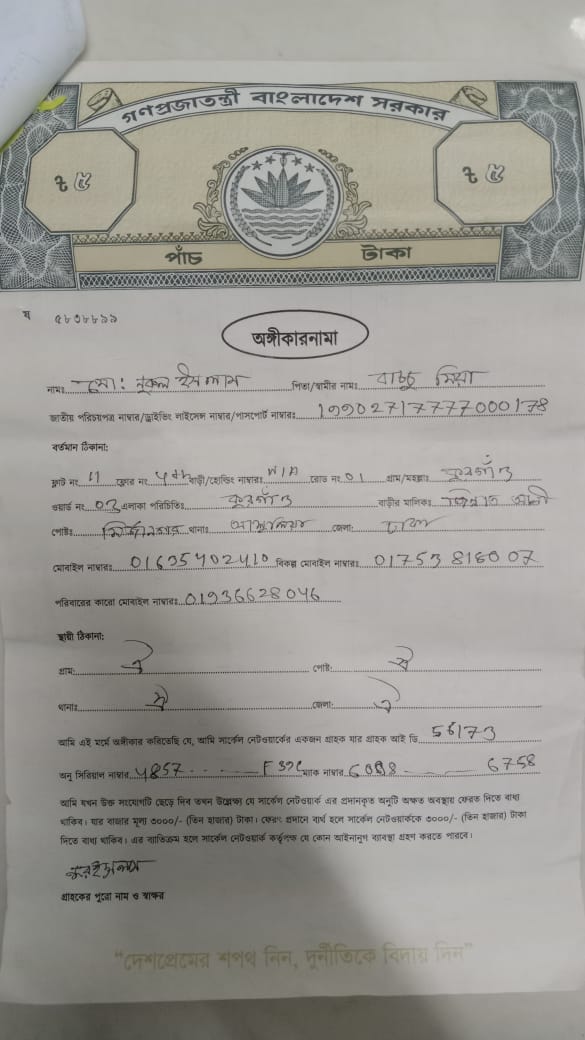 গণপ্রজাতন্ত্রী বাংলাদেশ সরকার
৳ ৫ ৳ ৫
পাঁচ টাকা
ষ ৫৮৩৮৮৯৯
অঙ্গীকারনামা
নামঃ মো: নুরুল ইসলাম পিতা/স্বামীর নামঃ বাচ্চু মিয়া
জাতীয় পরিচয়পত্র নাম্বার/ড্রাইভিং লাইসেন্স নাম্বার/পাসপোর্ট নাম্বারঃ 19902717777000178
বর্তমান ঠিকানা:
ফ্লাট নং ফ্লোর নং 4th বাড়ী/হোল্ডিং নাম্বারঃ N/A রোড নং 01 গ্রাম/মহল্লাঃ কুরগাঁও
ওয়ার্ড নং 03 এলাকা পরিচিতিঃ কুরগাঁও বাড়ীর মালিকঃ আলী
পোষ্টঃ মির্জানগর থানাঃ আশুলিয়া জেলা: ঢাকা
মোবাইল নাম্বারঃ 01635402410 বিকল্প মোবাইল নাম্বারঃ 01753818007
পরিবারের কারো মোবাইল নাম্বারঃ 01936628046
স্থায়ী ঠিকানা:
গ্রাম: ঐ পোষ্ট: ঐ
থানাঃ ঐ জেলা: ঐ
আমি এই মর্মে অঙ্গীকার করিতেছি যে, আমি সার্কেল নেটওয়ার্কের একজন গ্রাহক যার গ্রাহক আই ডি 56173
অনু সিরিয়াল নাম্বার 4857 F39C ম্যাক নাম্বার 6758
আমি যখন উক্ত সংযোগটি ছেড়ে দিব তখন উল্লেখ্য যে সার্কেল নেটওয়ার্ক এর প্রদানকৃত অনুটি অক্ষত অবস্থায় ফেরত দিতে বাধ্য
থাকিব। যার বাজার মূল্য ৩০০০/- (তিন হাজার) টাকা। ফেরৎ প্রদানে ব্যর্থ হলে সার্কেল নেটওয়ার্ককে ৩০০০/- (তিন হাজার) টাকা
দিতে বাধ্য থাকিব। এর ব্যতিক্রম হলে সার্কেল নেটওয়ার্ক কর্তৃপক্ষ যে কোন আইনানুগ ব্যবস্থা গ্রহণ করতে পারবে।
নুরুল ইসলাম
গ্রাহকের পুরো নাম ও স্বাক্ষর
“দেশপ্রেমের শপথ নিন, দুর্নীতিকে বিদায় দিন”